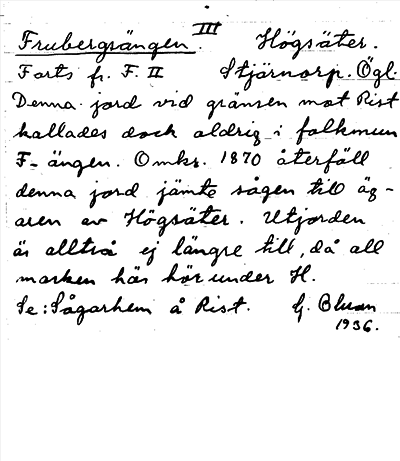 III
Frubergsängen. Högsäter.
Forts fr. F. II Stjärnorp. Ögl.
Denna jord vid gränsen mot Rist
kallades dock aldrig i folkmun
F-ängen. Omkr. 1870 återföll
denna jord jämte sågen till äg-
aren av Högsäter. Utjorden
är alltså ej längre till, då all
marken här hör under H.
Se: Sågarhem å Rist. G.
1936.